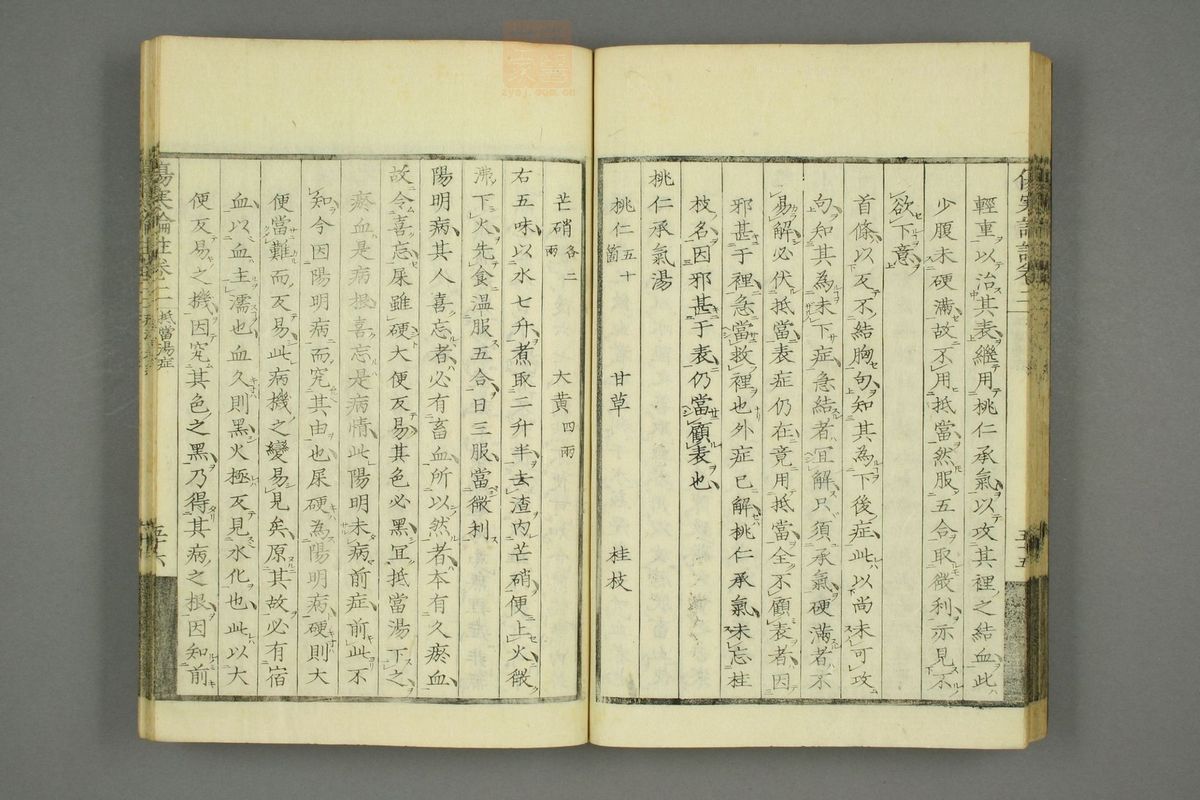 輕重以治其表繼用桃仁承氣以攻其裡之結血此
少腹未硬滿故不用抵當然服五合取微利亦見不
欲下意
首條以反不結胸句知其為下後症此以尚未可攻
句知其為未下症急結者宜解只須承氣硬滿者不
易解必伏抵當表症仍在竟用抵當全不顧表者因
邪甚于裡急當救裡也外症已解桃仁承氣未忘桂
枝名因邪甚于表仍當顧表也
桃仁承氣湯
桃仁五十箇 甘草 桂枝
芒硝各二兩 大黃四兩
右五味以水七升煮取二升半去渣內芒硝便上火微
沸下火先食溫服五合日三服當微利
陽明病其人喜忘者必有畜血所以然者本有久瘀血
故令喜忘屎雖硬大便反易其色必黑宜抵當湯下之
瘀血是病根喜忘是病情此陽明未病前症前此不
知今因陽明病而究其由也屎硬為陽明病硬則大
便當難而反易此病機之變易見矣原其故必有宿
血以血主濡也血久則黑火極反見水化也此以大
便反易之機因究其色之黑乃得其病之根因知前
傷寒論註卷二 抵當湯症
五十六
五十五